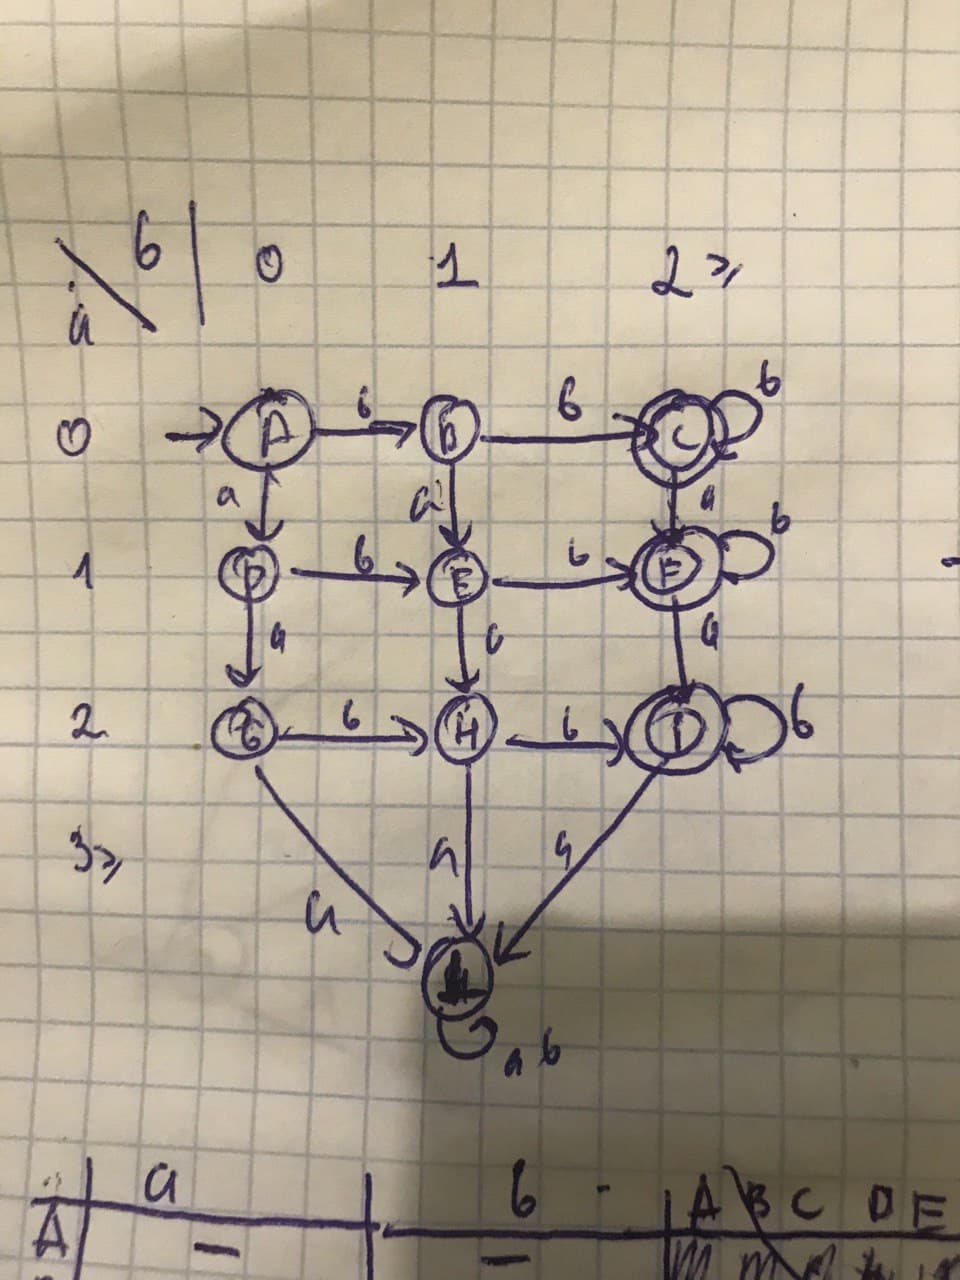 b 0 1 2 ≥
a
0 A b B b C b
a a a
1 D b E b F b
a a a
2 G b H b I b
3 ≥
a a a
a b
a b A B C D E
A — —